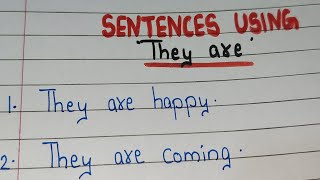 SENTENCES USING
They are
1. They are happy.
2. They are coming.